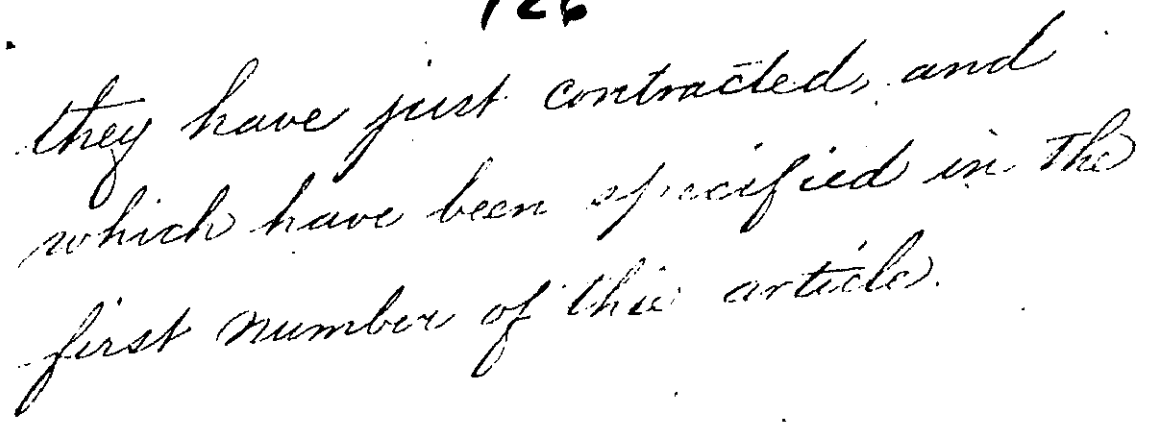 126
they have just contracted, and
which have been specified in the
first number of this article.